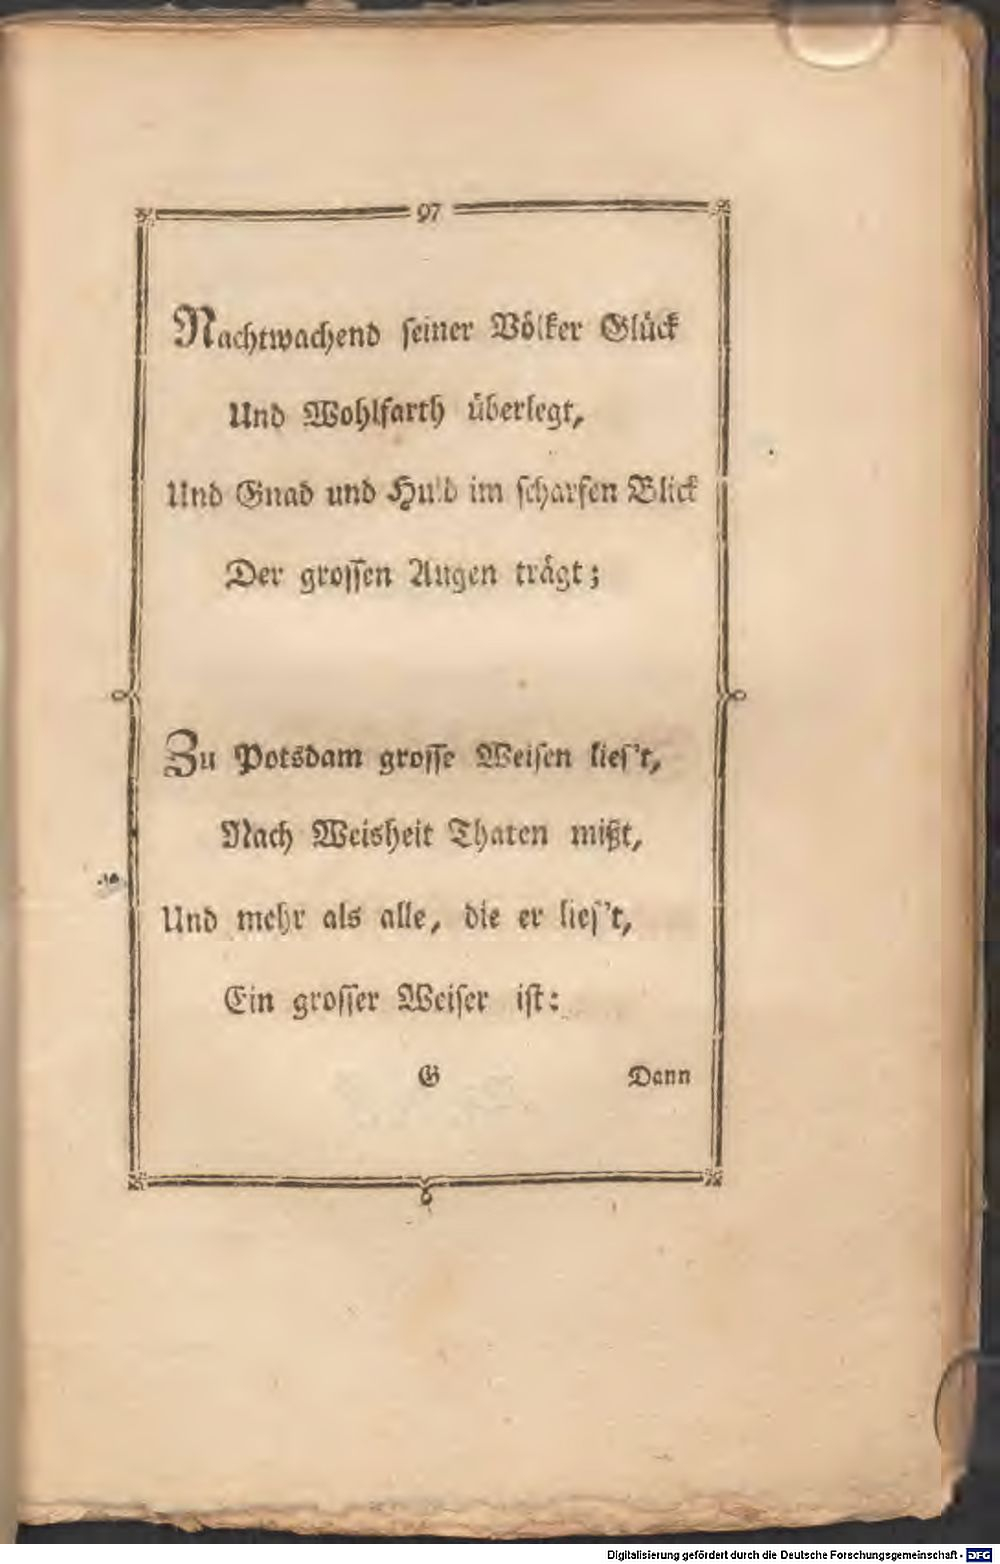 97
Nachtwachend ſeiner Völker Glück
Und Wohlfarth überlegt,
Und Gnad und Huld im ſcharfen Blick
Der groſſen Augen trägt;
Zu Potsdam groſſe Weiſen lieſ't,
Nach Weisheit Thaten mißt,
Und mehr als alle, die er lieſ't,
Ein groſſer Weiſer iſt:
G Dann
Digitalisierung gefördert durch die Deutsche Forschungsgemeinschaft - DFG